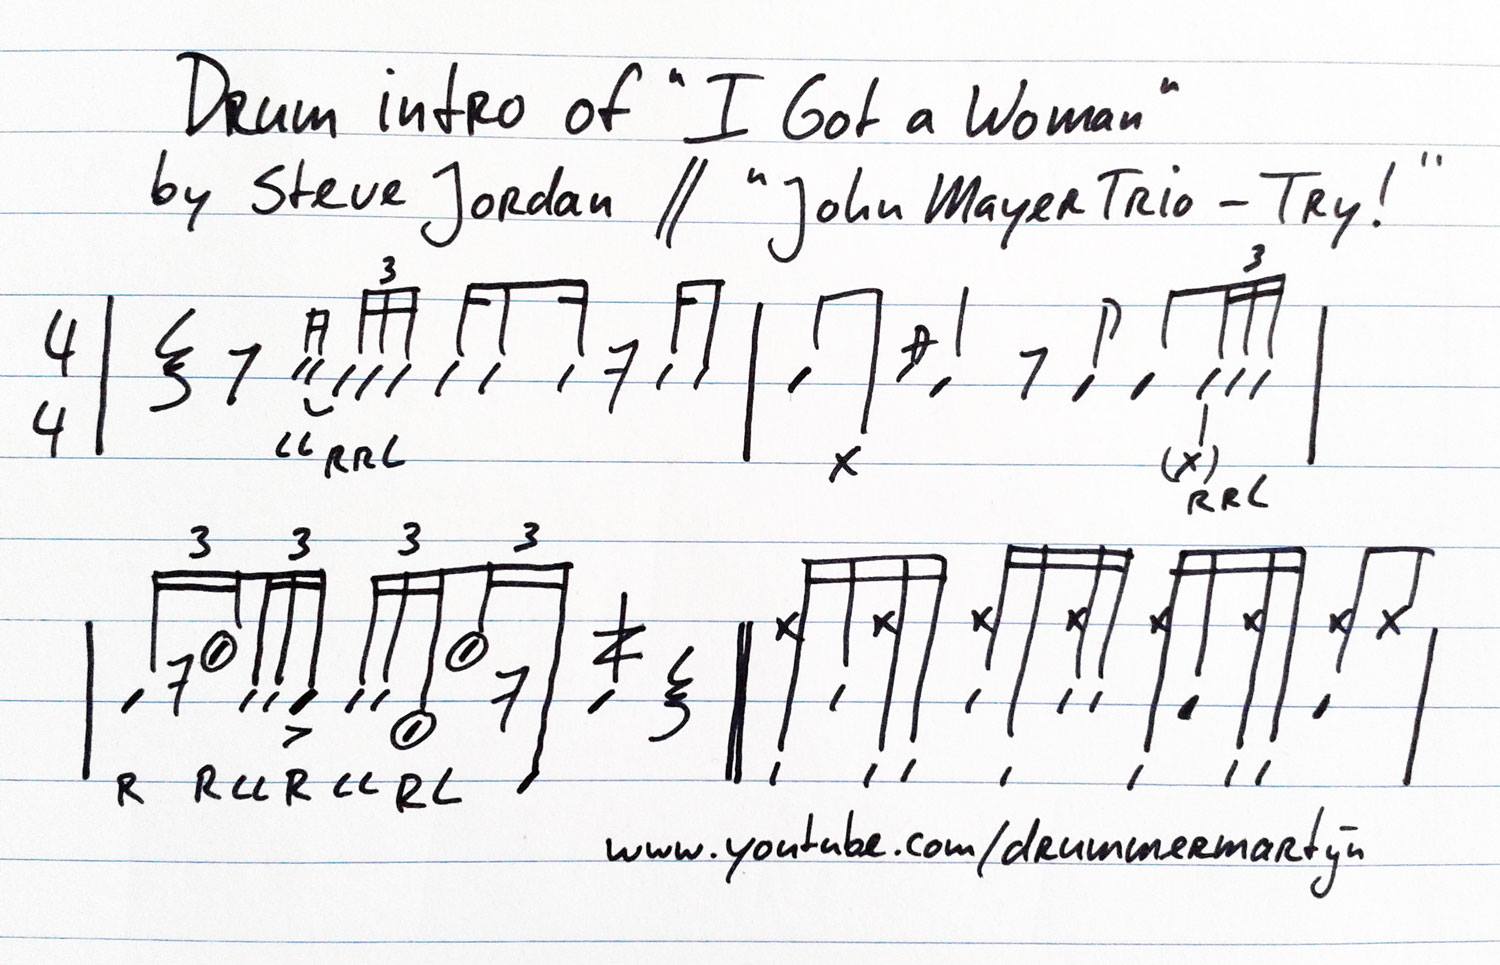 Drum intro of "I Got a Woman"
by Steve Jordan // "John Mayer Trio – Try!"
3 3
4
4
LL RRL
(x)
RRL
3 3 3 3
R RLL R LL RL
www.youtube.com/drummermartijn